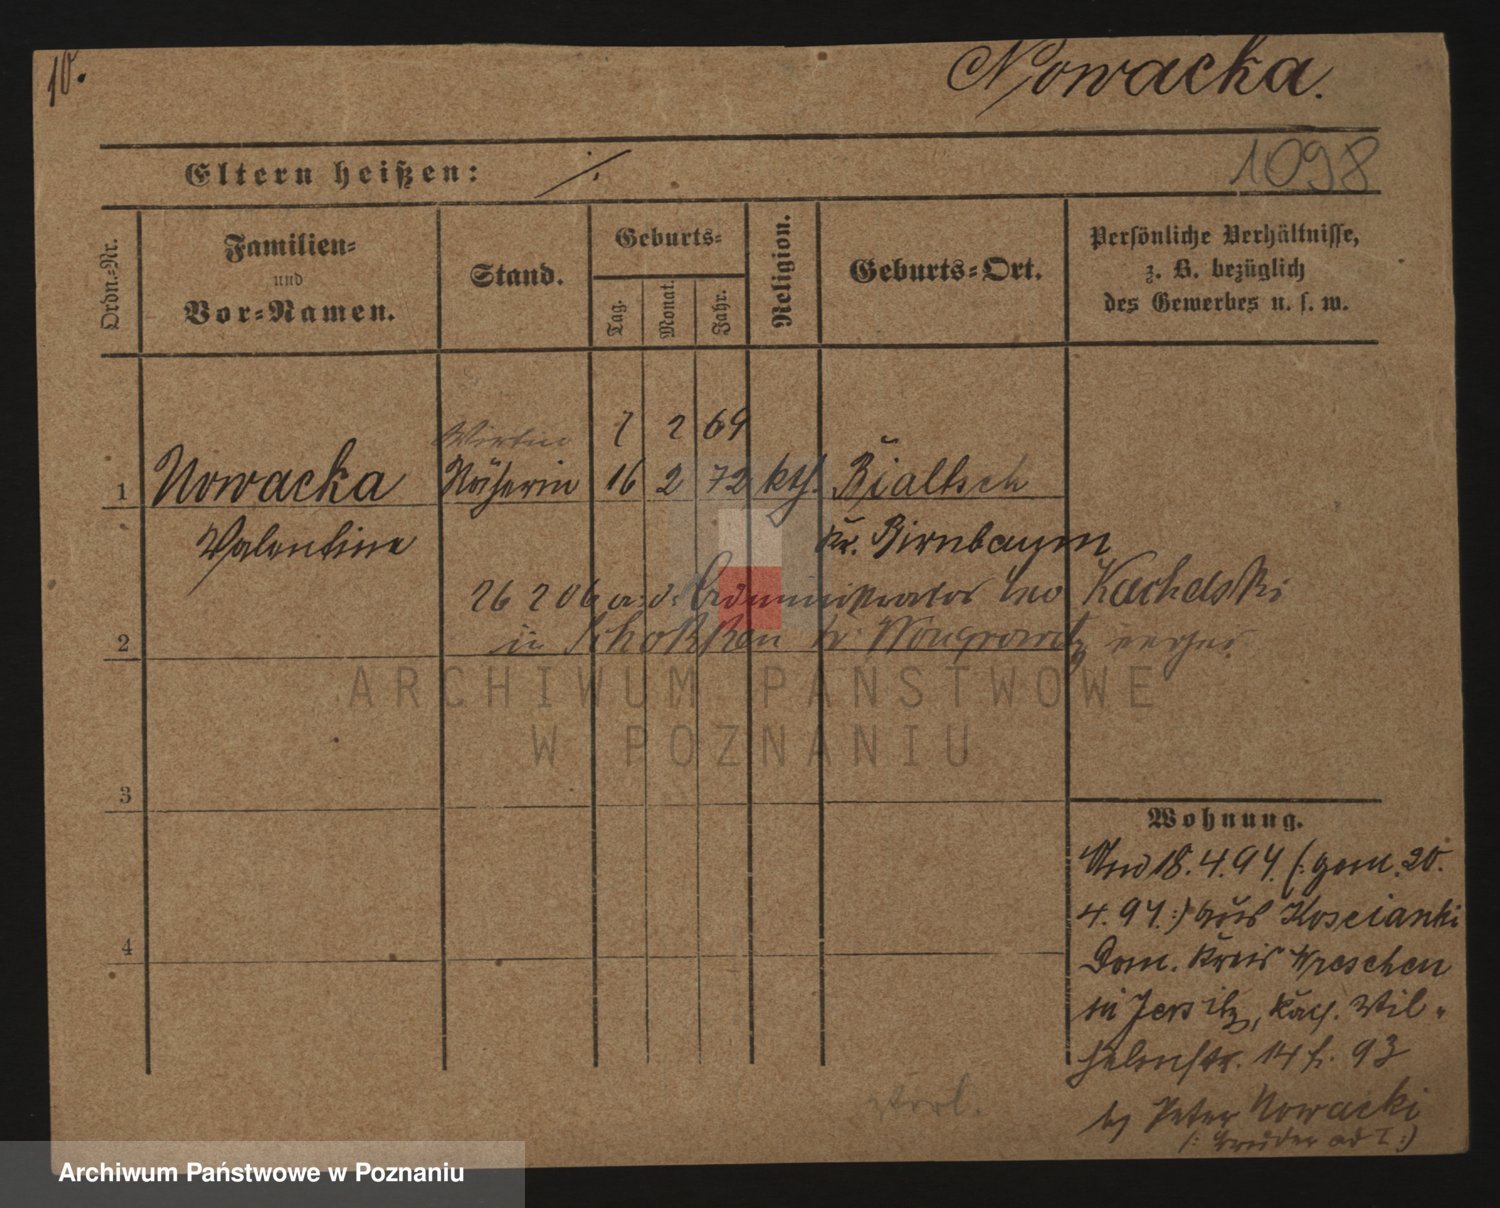 10.
Nowacka.
1098
Eltern heißen: ./.
Ordn.-Nr.
Familien-
und
Vor-Namen.
Stand.
Geburts-
Tag.
Monat.
Jahr.
Religion.
Geburts-Ort.
Persönliche Verhältnisse,
z. B. bezüglich
des Gewerbes u. s. w.
Wirtin 7 2 69
1 Nowacka Näherin 16 2 72 kth. Bialtsch
Valentine Kr. Birnbaum
26 2 06 a. d. Administrator Leo Kachelski
in Schokken Kr. Wongrowitz
2
3
4
Wohnung.
18.4.94. (: gem. 20.
4.94. :) aus Koscianki
Dom. Kreis Wreschen
in Jersitz, Kais. Wil-
helmstr. 14 f. 93
b/ Peter Nowacki
(: Bruder ad I :)
verl.
ARCHIWUM PAŃSTWOWE
W POZNANIU
Archiwum Państwowe w Poznaniu